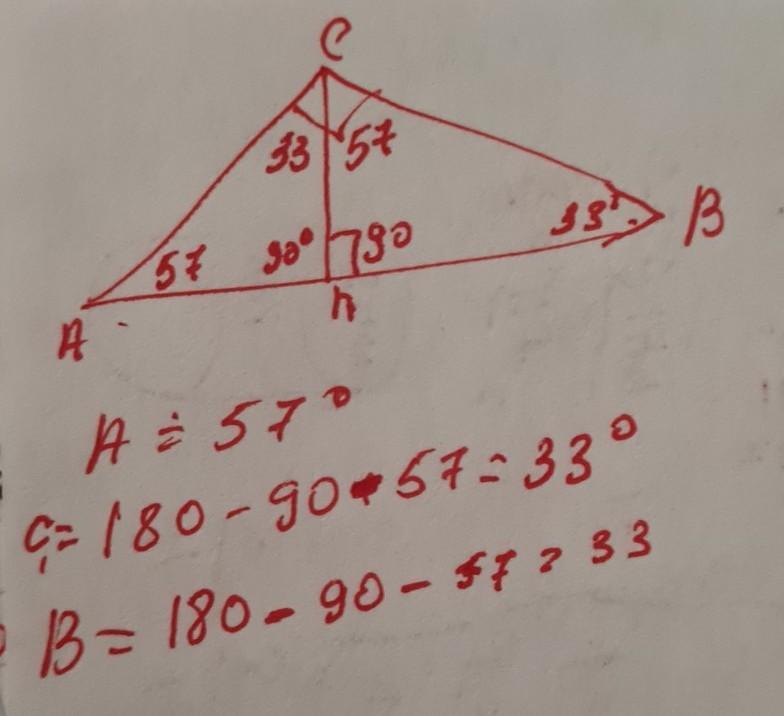 C
33 57
57 90° 90 33° B
A h
A = 57°
C₁= 180 - 90 - 57 = 33°
B = 180 - 90 - 57 = 33